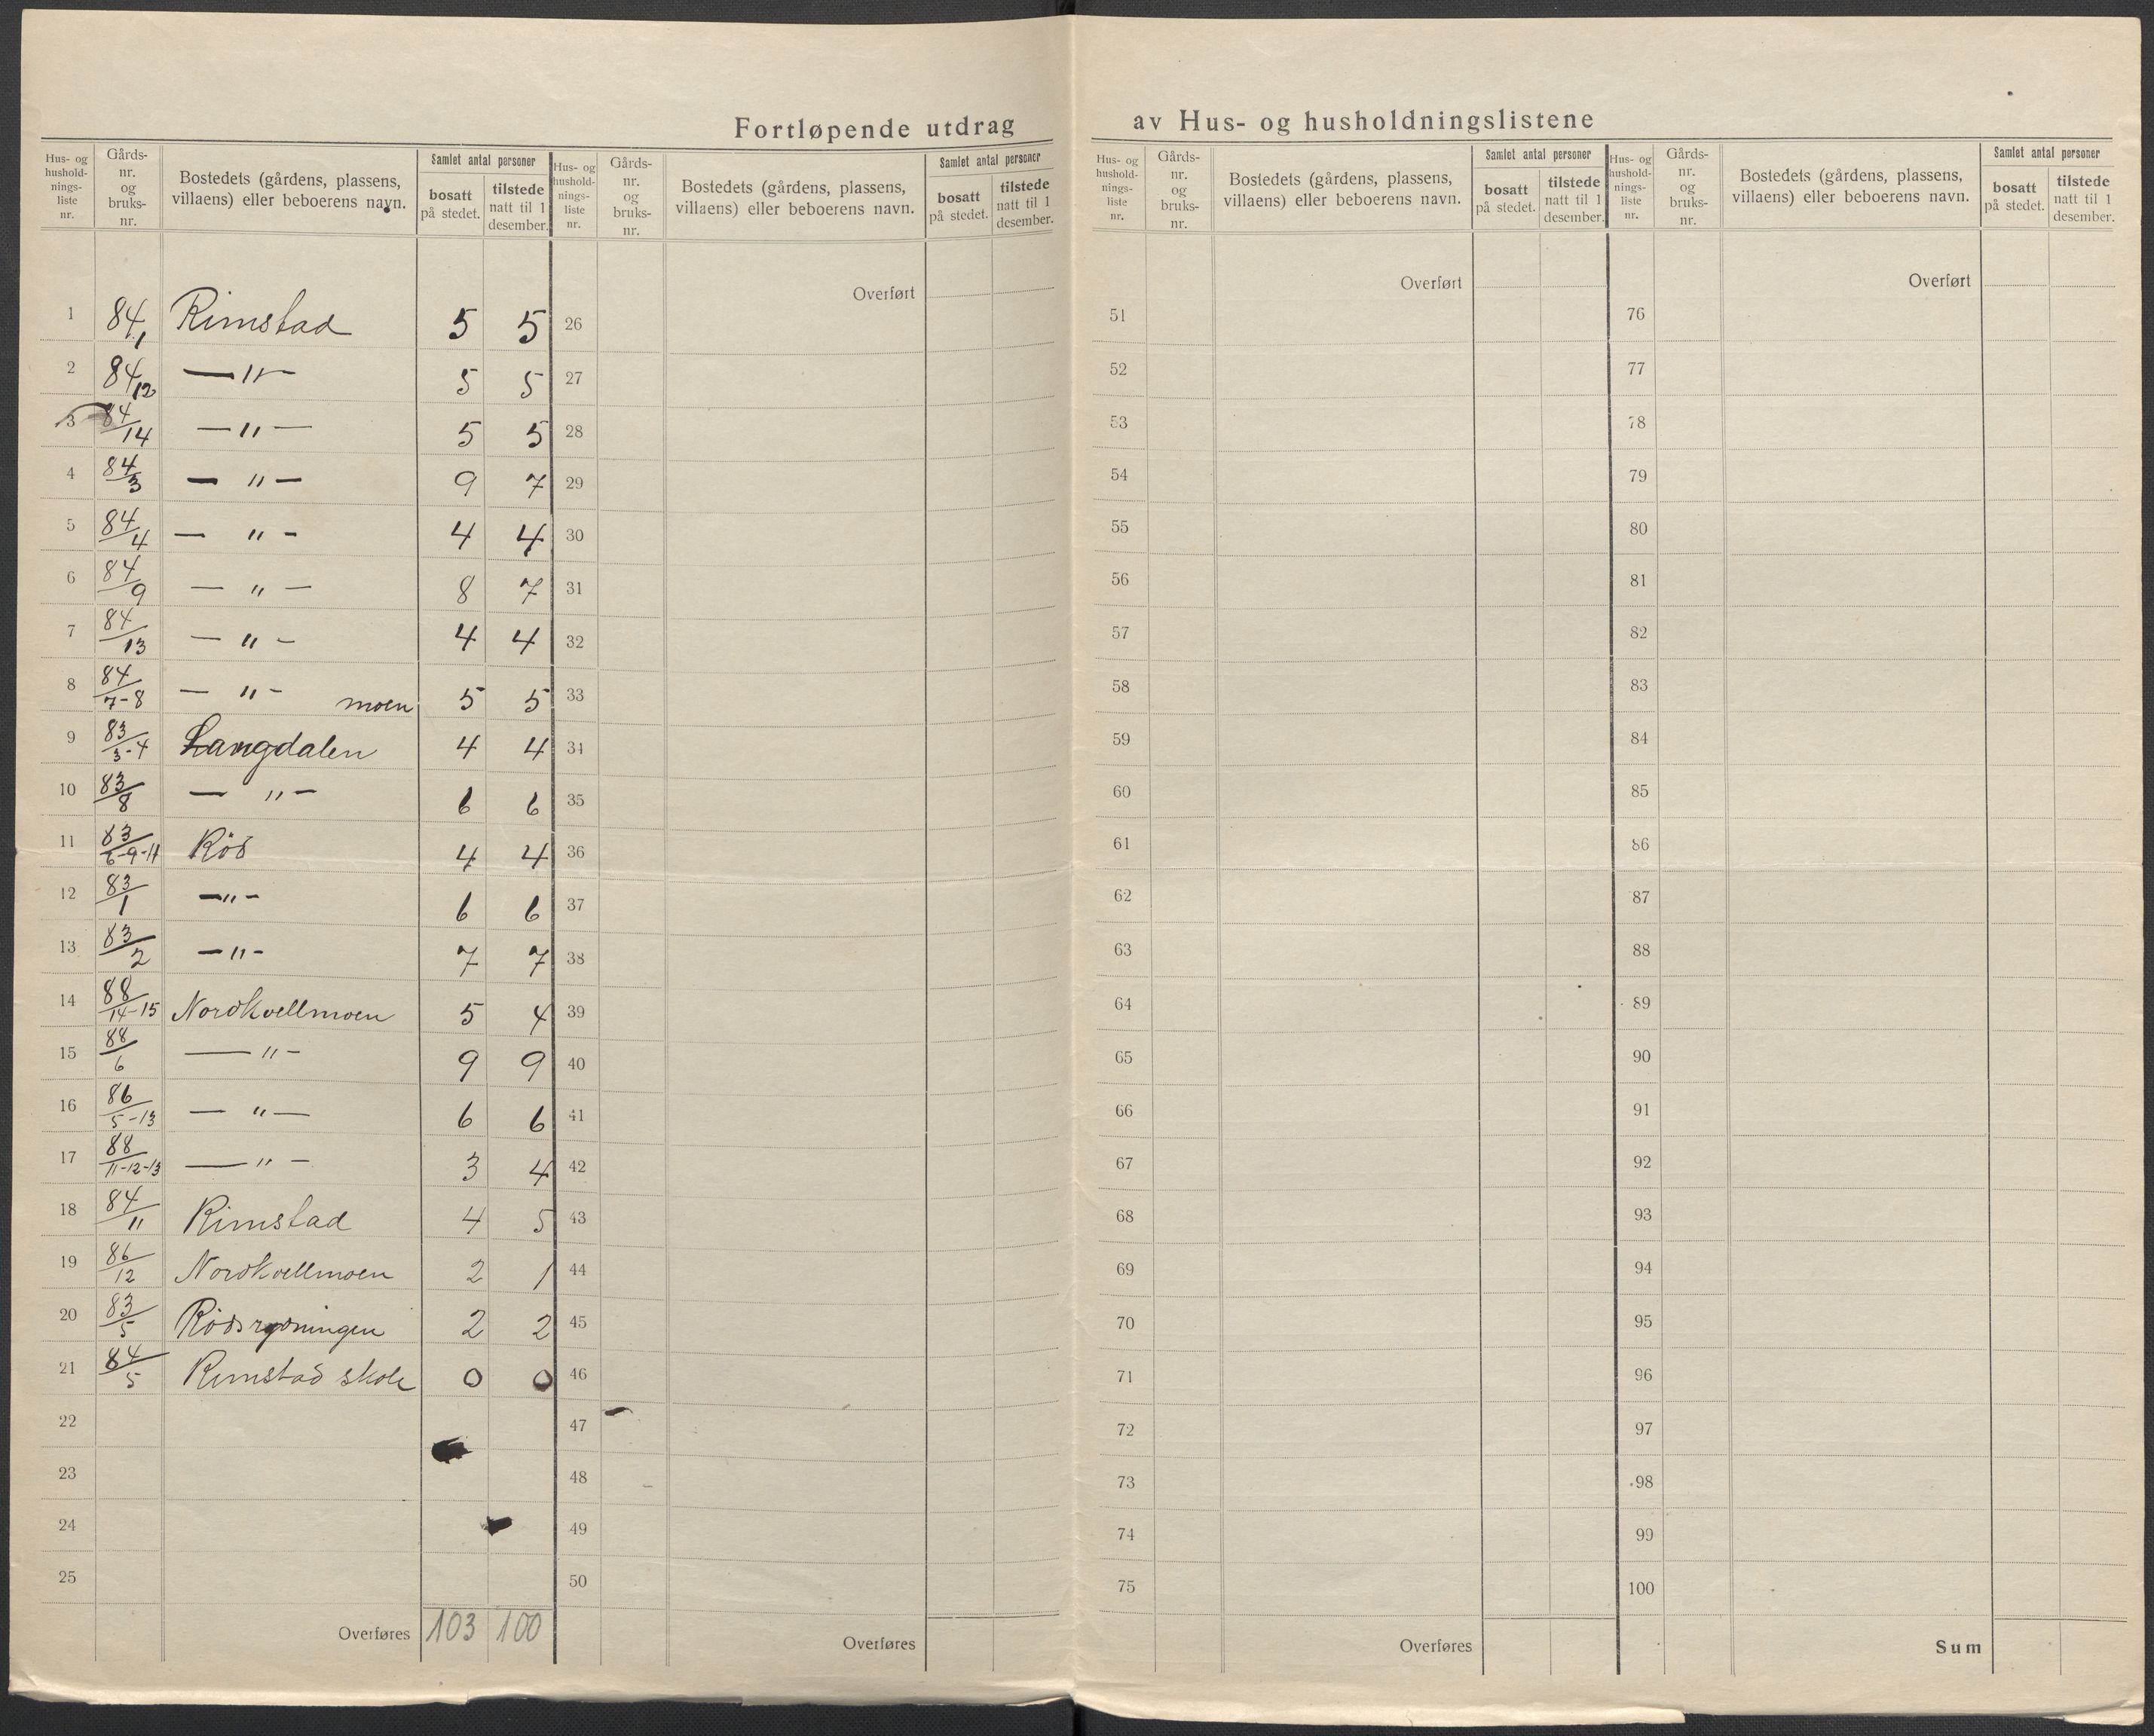 Fortløpende utdrag av Hus- og husholdningslistene
Hus- og hushold-nings-liste nr. | Gårds-nr. og bruks-nr. | Bostedets (gårdens, plassens, villaens) eller beboerens navn. | Samlet antal personer | bosatt på stedet. | tilstede natt til 1 desember.
1 84/1 Rimstad 5 5
2 84/12 —"— 5 5
3 84/14 —"— 5 5
4 84/3 — "— 9 7
5 84/4 — " - 4 4
6 84/9 — " — 8 7
7 84/13 — " - 4 4
8 84/7-8 — " - moen 5 5
9 83/3-4 Langdalen 4 4
10 83/8 — "— 6 6
11 83/6-9-11 Röd 4 4
12 83/1 —"- 6 6
13 83/2 —"- 7 7
14 88/14-15 Nordkvellmoen 5 4
15 88/6 — "- 9 9
16 86/5-13 — "— 6 6
17 88/11-12-13 — " - 3 4
18 84/11 Rimstad 4 5
19 86/12 Nordkvellmoen 2 1
20 83/5 Rödsrydningen 2 2
21 84/5 Rimstad skole 0 0
22
23
24
25
Overføres 103 100
Hus- og hushold-nings-liste nr. | Gårds-nr. og bruks-nr. | Bostedets (gårdens, plassens, villaens) eller beboerens navn. | Samlet antal personer | bosatt på stedet. | tilstede natt til 1 desember.
Overført
26
27
28
29
30
31
32
33
34
35
36
37
38
39
40
41
42
43
44
45
46
47
48
49
50
Overføres
Hus- og hushold-nings-liste nr. | Gårds-nr. og bruks-nr. | Bostedets (gårdens, plassens, villaens) eller beboerens navn. | Samlet antal personer | bosatt på stedet. | tilstede natt til 1 desember.
Overført
51
52
53
54
55
56
57
58
59
60
61
62
63
64
65
66
67
68
69
70
71
72
73
74
75
Overføres
Hus- og hushold-nings-liste nr. | Gårds-nr. og bruks-nr. | Bostedets (gårdens, plassens, villaens) eller beboerens navn. | Samlet antal personer | bosatt på stedet. | tilstede natt til 1 desember.
Overført
76
77
78
79
80
81
82
83
84
85
86
87
88
89
90
91
92
93
94
95
96
97
98
99
100
Sum